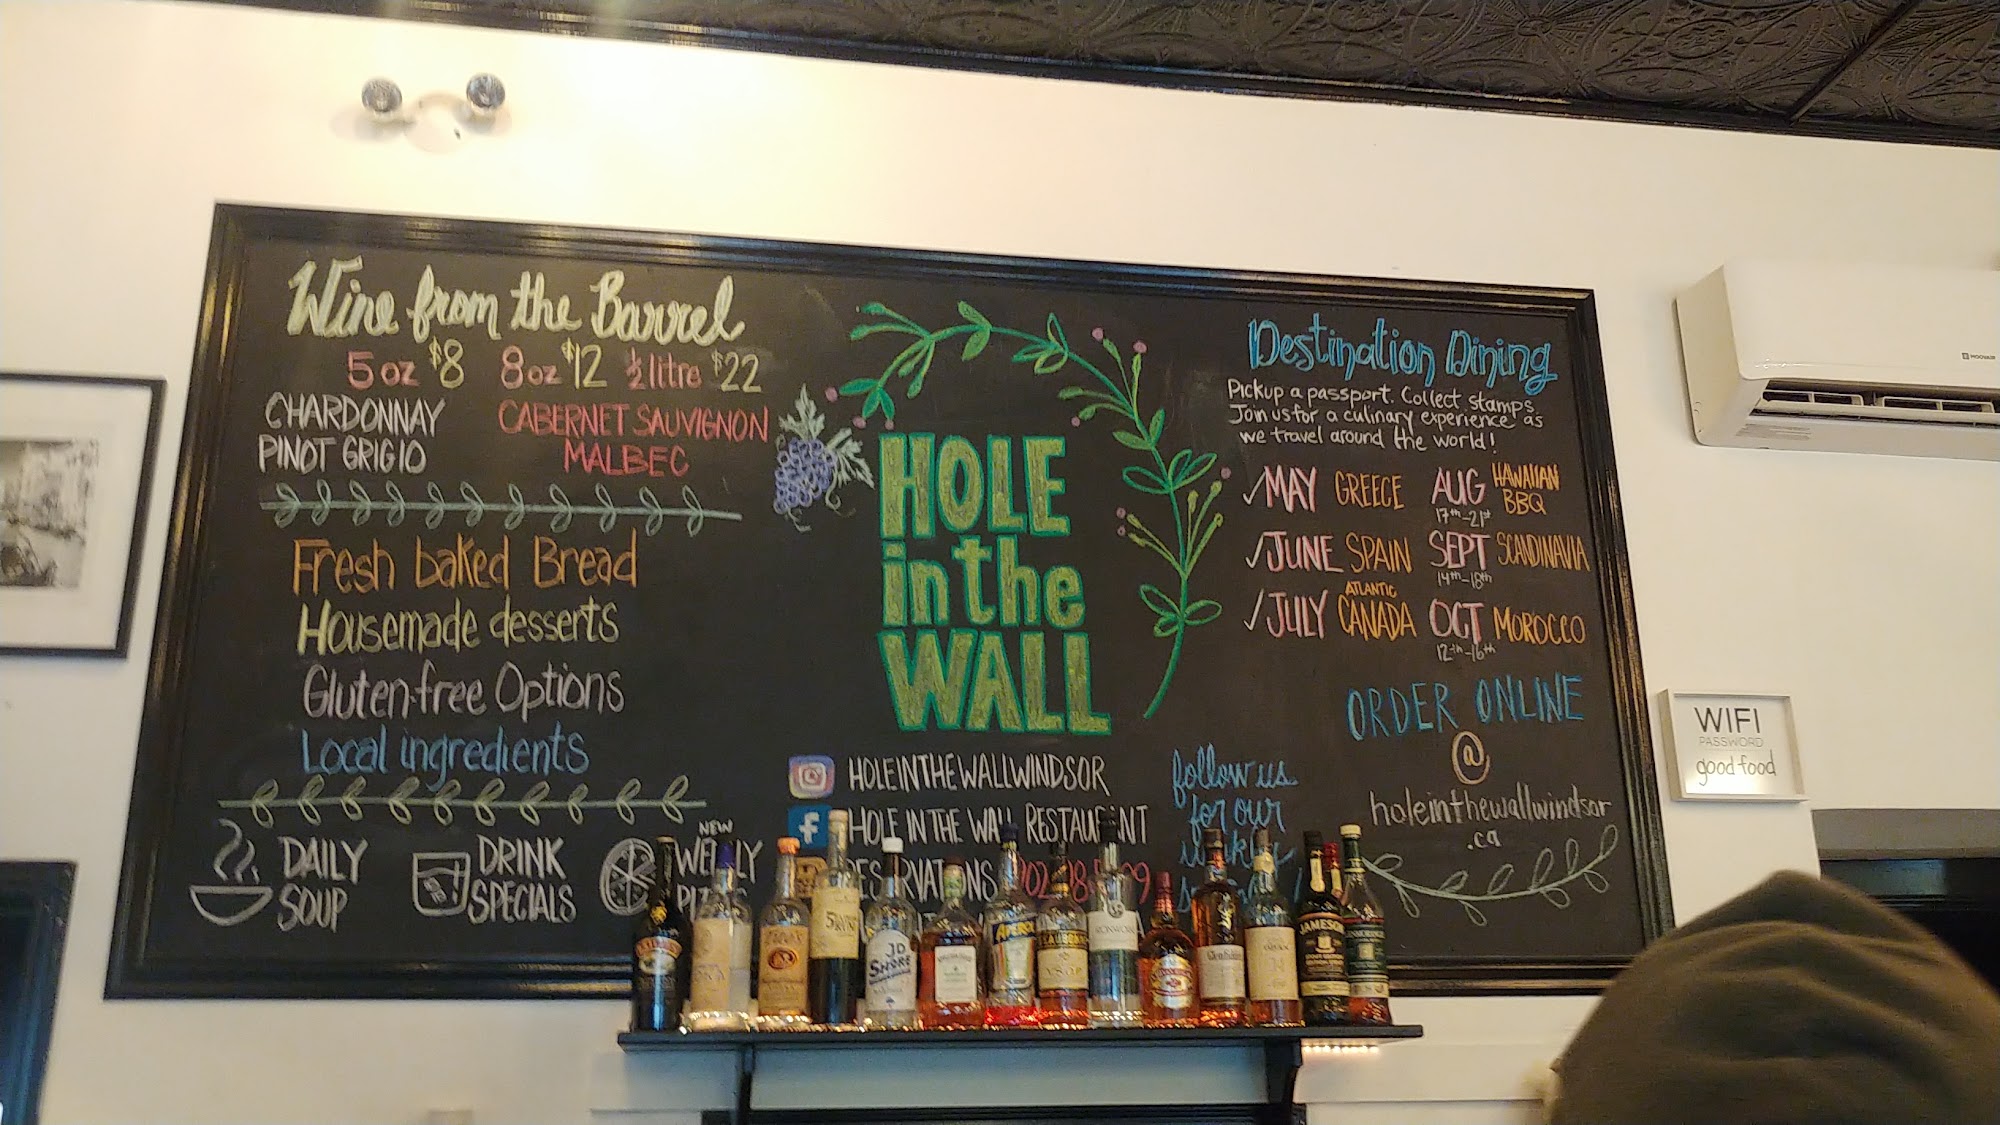 Wine from the Barrel
5 oz $8 8 oz $12 ½ litre $22
CHARDONNAY CABERNET SAUVIGNON
PINOT GRIGIO MALBEC
Fresh baked Bread
Housemade desserts
Gluten-free Options
Local ingredients
DAILY
SOUP
DRINK
SPECIALS
NEW
HOLE
in the
WALL
HOLEINTHEWALLWINDSOR
HOLE IN THE WALL RESTAURANT
follow us
for our
Destination Dining
Pickup a passport. Collect stamps.
Join us for a culinary experience as
we travel around the world!
✓MAY GREECE
✓JUNE SPAIN
✓JULY ATLANTIC CANADA
AUG HAWAIIAN BBQ
17th-21st
SEPT SCANDINAVIA
14th-18th
OCT MOROCCO
12th-16th
ORDER ONLINE
@
holeinthewallwindsor
.ca
WIFI
PASSWORD
good food
MOOVAIR
JD
SHORE
APEROL
V.S.O.P
JAMESON